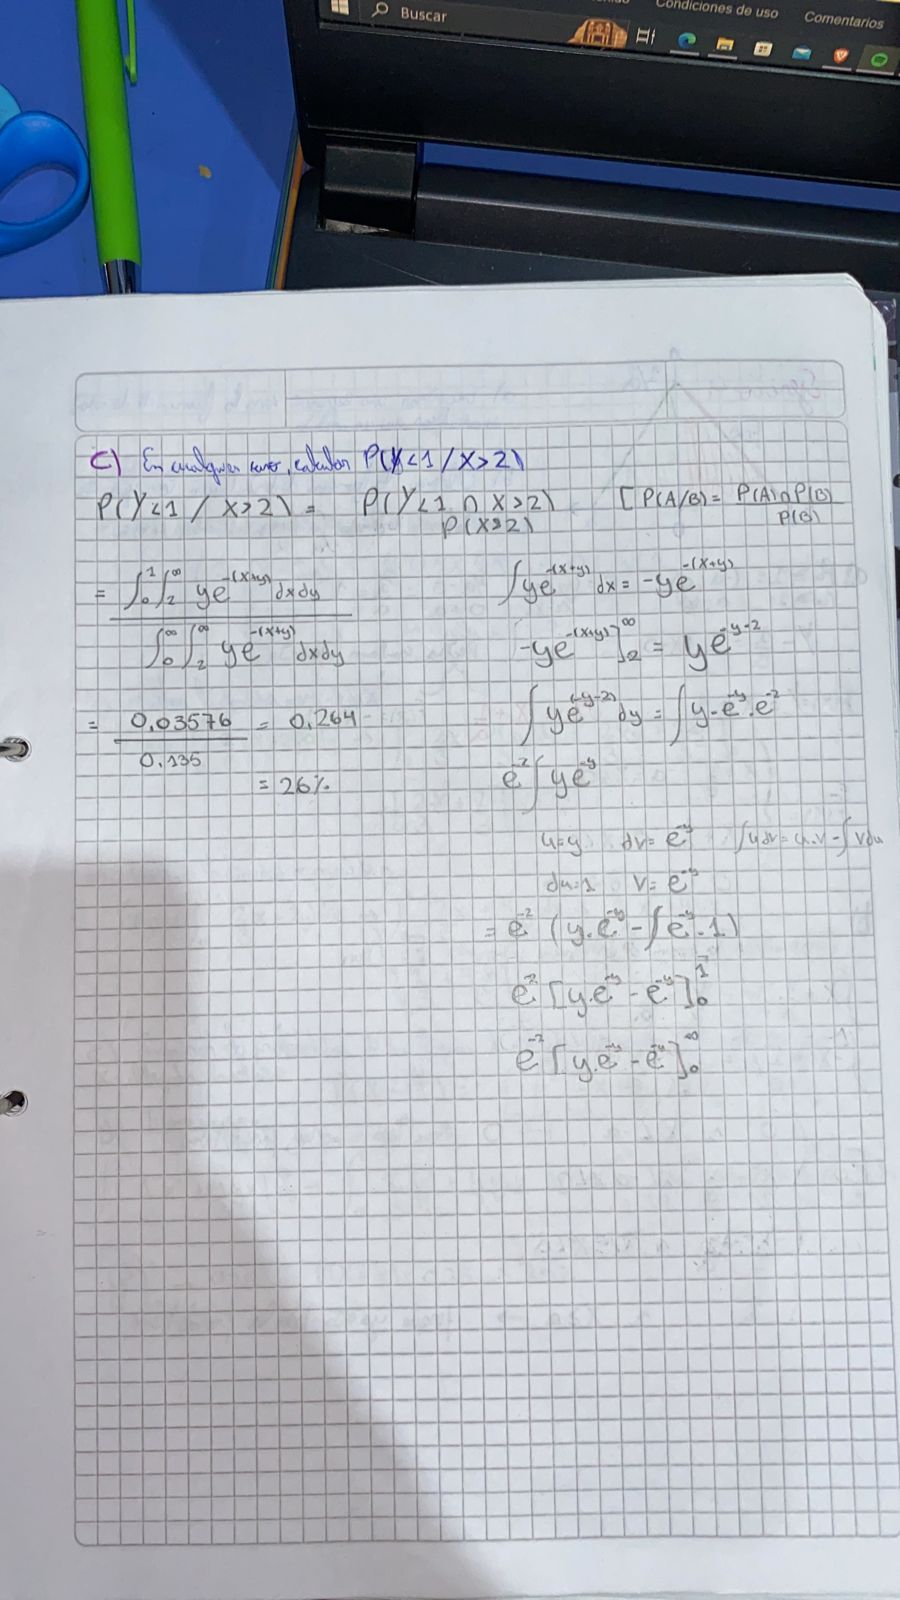 Buscar
Condiciones de uso Comentarios
C) En cualquier caso, calcular P(Y<1 / X>2)
P(Y<1 / X>2) = P(Y<1 ∩ X>2) / P(X>2) [P(A/B) = P(A)∩P(B) / P(B)
= ∫₀¹∫₂^∞ ye^-(x+y) dxdy / ∫₀^∞∫₂^∞ ye^-(x+y) dxdy
= 0,03576 / 0.135 = 0,264
= 26%
∫ye^-(x+y) dx = -ye^-(x+y)
-ye^-(x+y)]₂^∞ = ye^-y-2
∫ye^(-y-2) dy = ∫y·e^-y·e^-2
e^-2∫ye^-y
u=y dv=e^-y ∫udv=u.v-∫vdu
du=1 v=e^-y
= e^-2 (y.e^-y - ∫e^-y.1)
e^-2 [y.e^-y - e^-y]₀¹
e^-2 [y.e^-y - e^-y]₀^∞